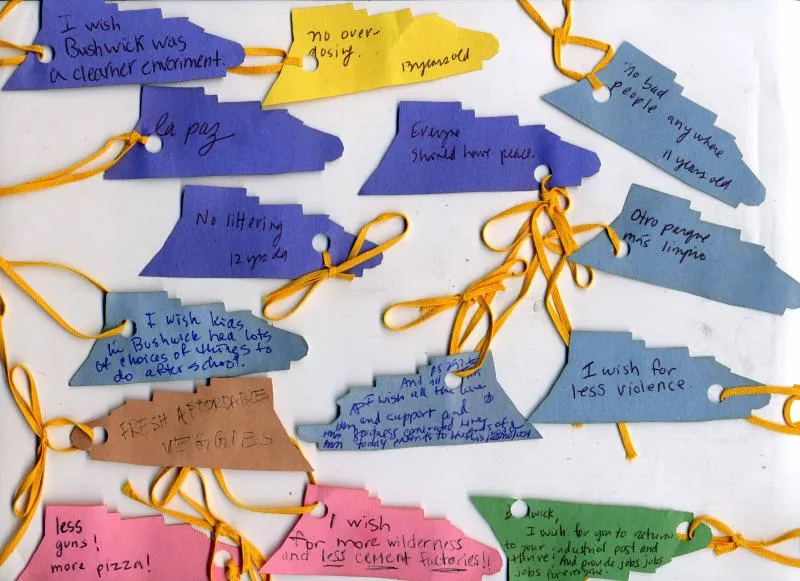 I wish
Bushwick was
a clearner enviroment.
no over-
dosing.
13 years old
no bad
people anywhere
11 years old
la paz
Everyone
should have peace.
No littering
12 yrs old
Otro parque
más limpio
I wish kids
in Bushwick had lots
of choices of things to
do after school.
And
I wish all the love
and support and
today
I wish for
less violence.
FRESH AFFORDABLE
VEGGIES
less
guns!
more pizza!
I wish
for more wilderness
and less cement factories!!
I wish for you to return
to your industrial past and
thrive! And provide jobs jobs
jobs for everyone.